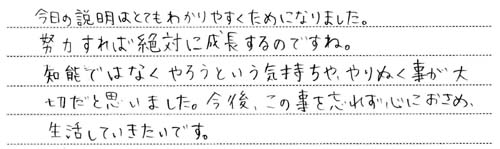 今日の説明はとてもわかりやすくためになりました。
努力すれば絶対に成長するのですね。
知能ではなくやろうという気持ちや、やりぬく事が大
切だと思いました。今後、この事を忘れず心におさめ、
生活していきたいです。